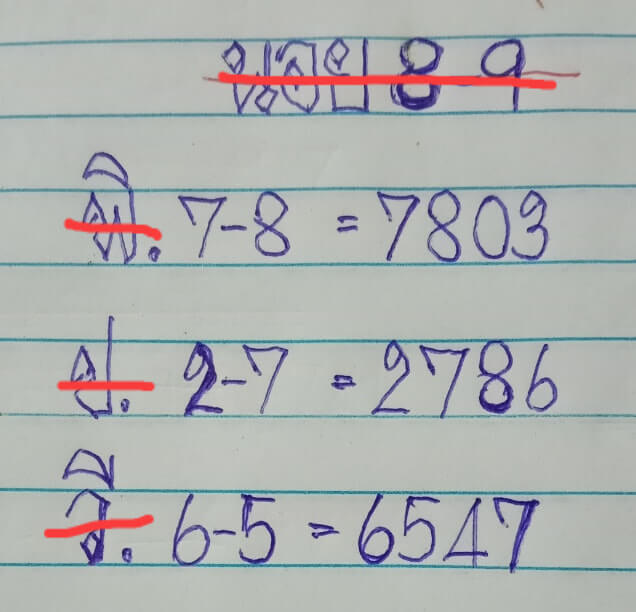 หวย 8 9
พิ. 7-8 = 7803
ป. 2-7 = 2786
จี. 6-5 = 6547